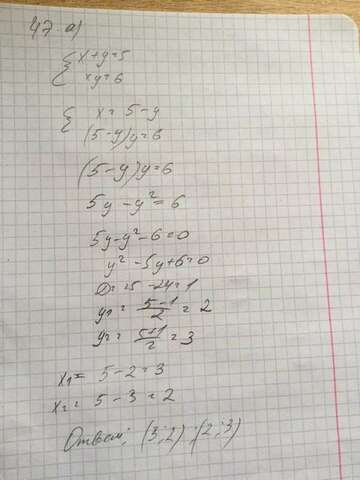 47. а)
{ x+y=5
xy=6
{ x = 5-y
(5-y)y=6
(5-y)y=6
5y - y² = 6
5y-y²-6=0
y² - 5y+6=0
D = 25 - 24 = 1
y₁ = (5-1)/2 = 2
y₂ = (5+1)/2 = 3
x₁ = 5-2=3
x₂ = 5-3=2
Ответ: (3;2) ; (2;3)